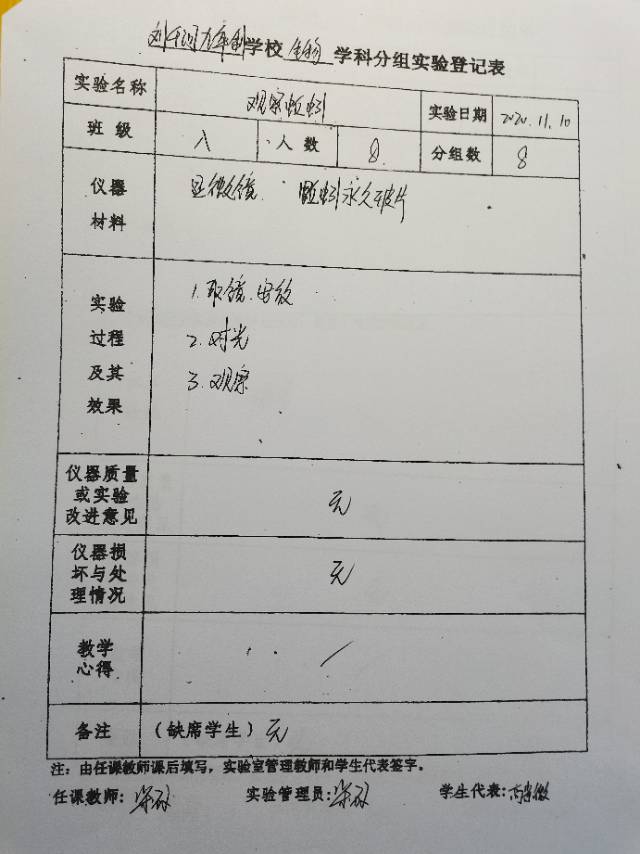 学校 生物 学科分组实验登记表
实验名称 观察蚯蚓 实验日期 2020.11.10
班级 八 人数 8 分组数 8
仪器材料 显微镜 蚯蚓永久玻片
实验过程及其效果
1.取镜.安放
2.对光
3.观察
仪器质量或实验改进意见 无
仪器损坏与处理情况 无
教学心得 /
备注 (缺席学生) 无
注：由任课教师课后填写，实验室管理教师和学生代表签字。
任课教师: 实验管理员: 学生代表: